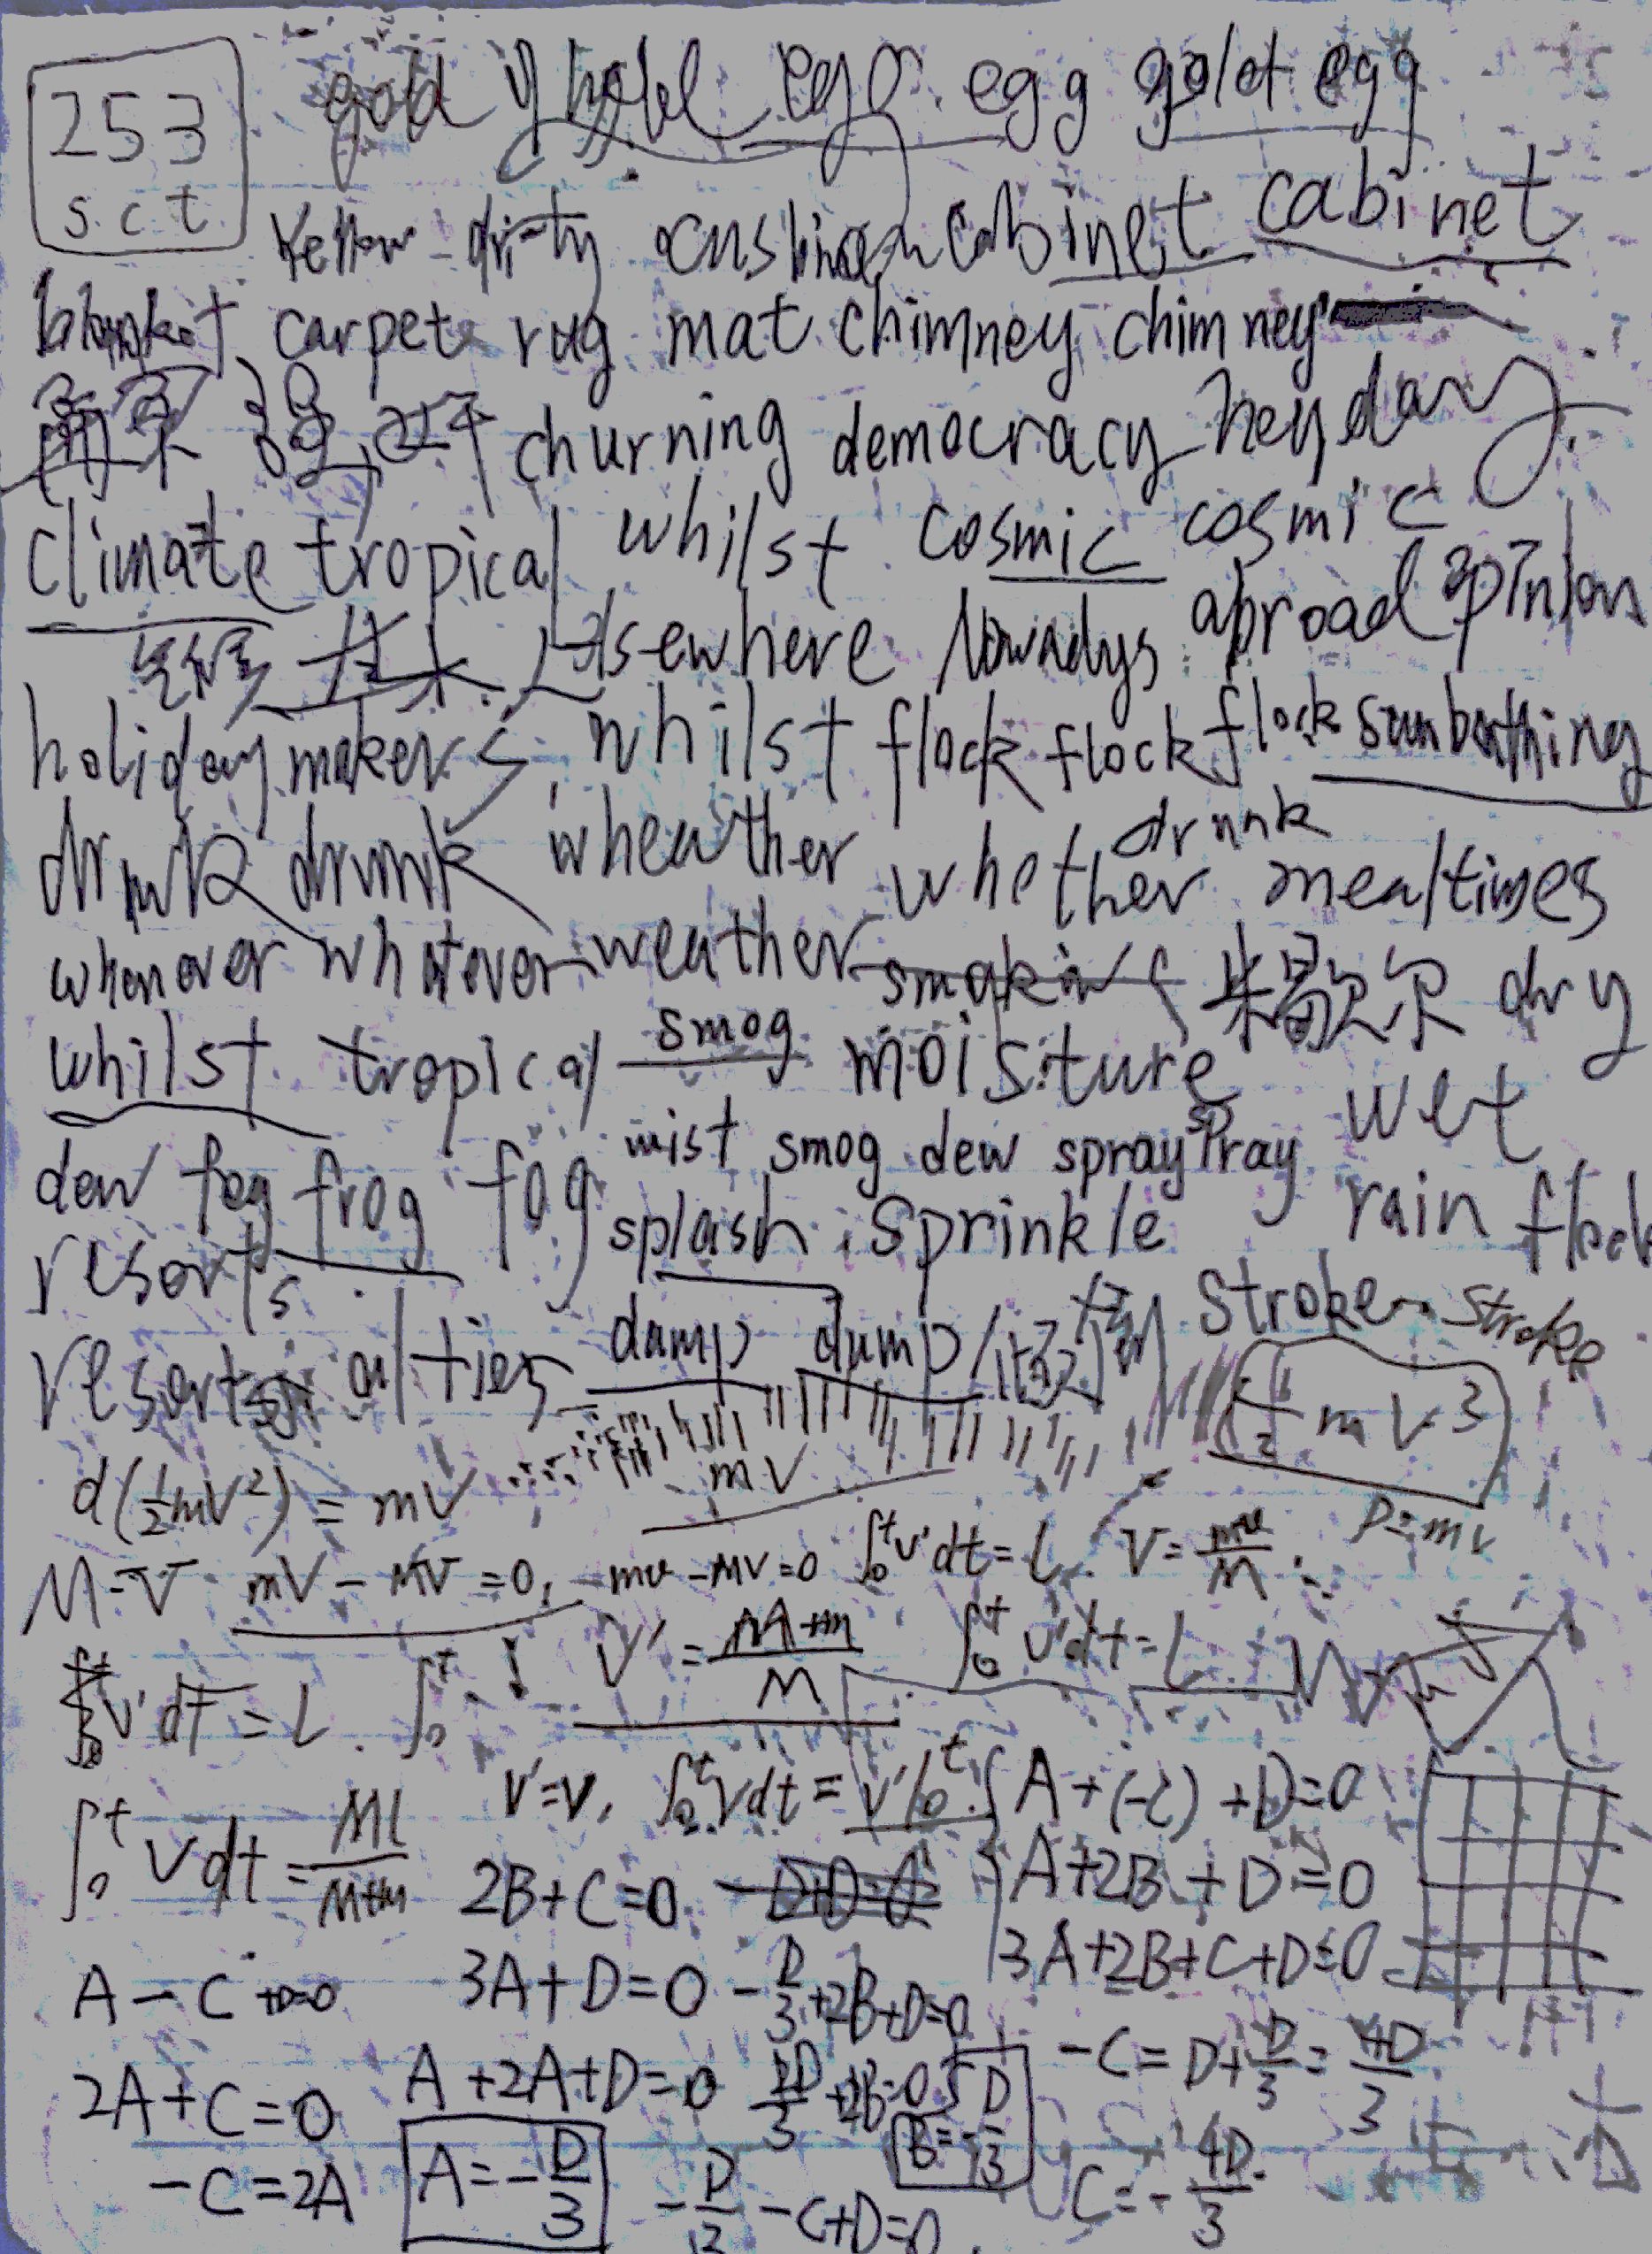 253
s.c t
gold egg egg gold egg
Yellow dirty cushion cabinet cabinet
blanket carpet rug mat chimney chimney
churning democracy heyday
climate tropical whilst cosmic cosmic
气候 elsewhere Nowadys abroad opinion
holidaymakers whilst flock flock flock sunbathing
drunk drunk wheather whether drunk mealtimes
whenever whatever weather smoking dry
whilst tropical smog moisture wet
dew fog frog fog mist smog dew spray spray
resorts splash sprinkle rain flock
resorts damp dump stroke stroke
d(½mV²) = mV mV ½mV3
P=mv
M-V mV - MV = 0, mv - MV = 0 ∫₀ᵗ v'dt = L V = mv/M
∫₀ᵗ v'dt = L. ∫₀ᵗ V' = M+m/M ∫₀ᵗ v'dt = L
V'=V, ∫₀ᵗ Vdt = V'|₀ᵗ A+(-C)+D=0
∫₀ᵗ Vdt = Ml/M+m 2B+C=0 A+2B+D=0
3A+2B+C+D=0
A-C+D=0 3A+D=0 -D/3+2B+D=0
2A+C=0 A+2A+D=0 2D/3+2B=0 -C=D+D/3=4D/3
-C=2A A=-D/3 B=-D/3 C=-4D/3
-D/3-C+D=0